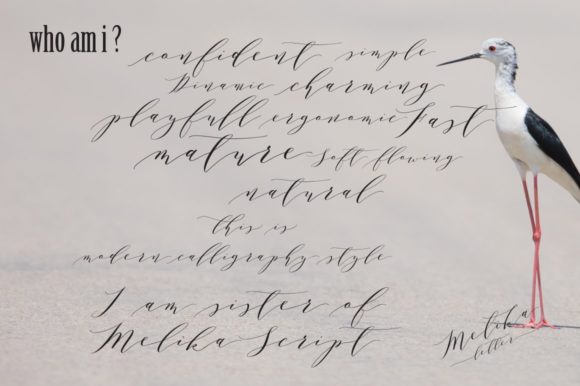 who am i ?
confident simple
Dinamic charming
playfull ergonomic Fast
mature Soft flowing
natural
this is
modern calligraphy style
I am sister of
Melika Script
Melika
letter